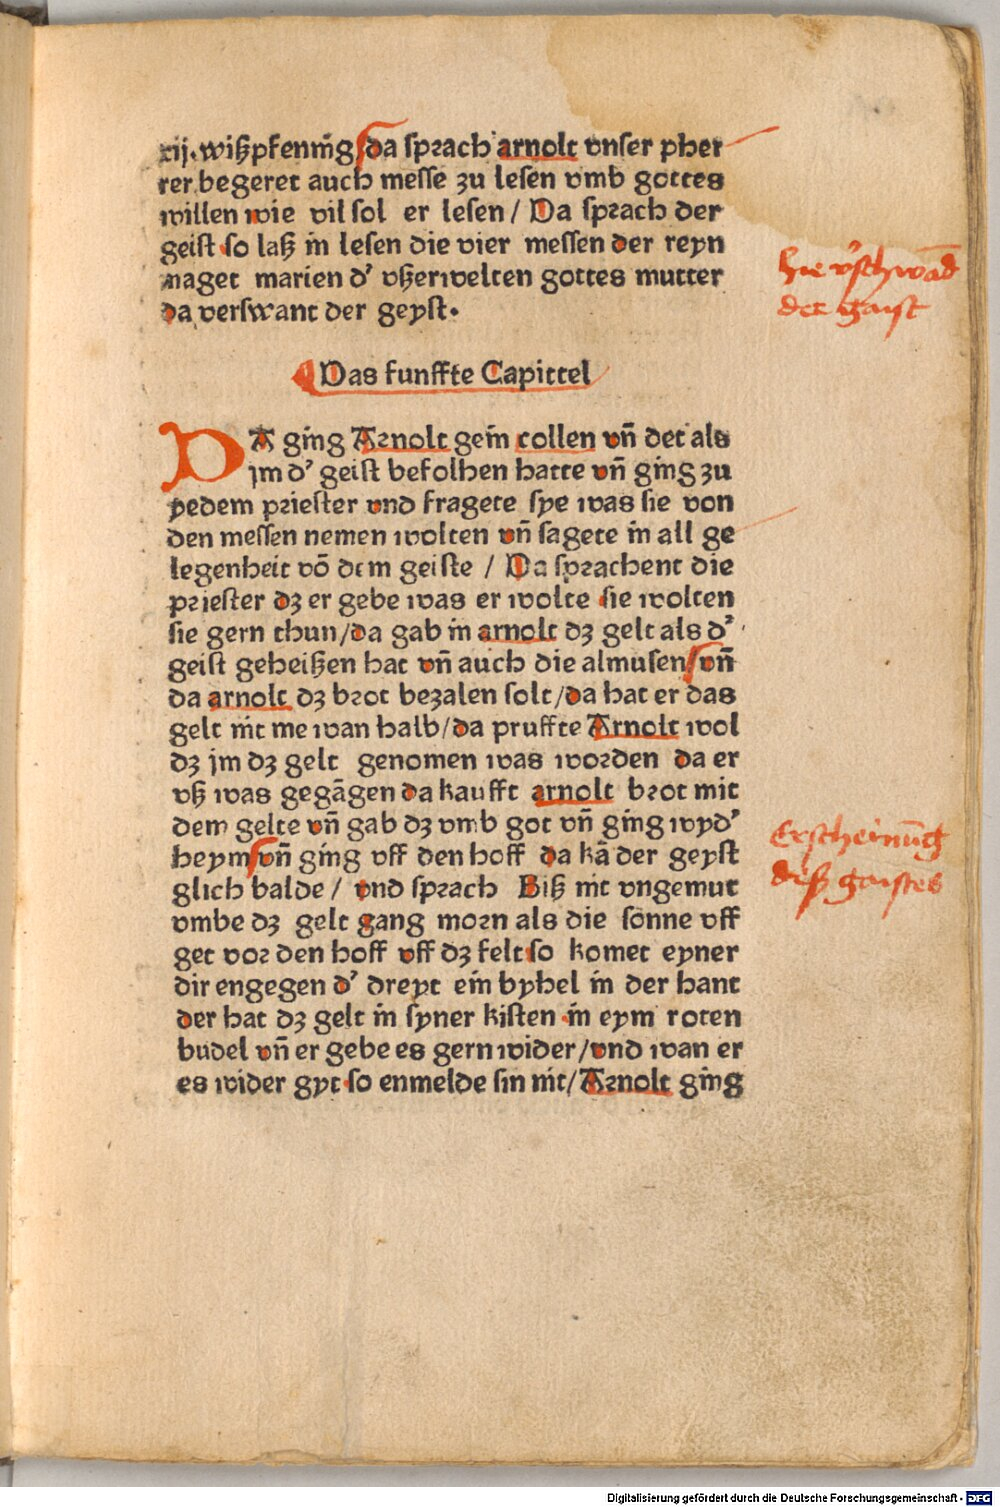 xij. wißpfenīng da sprach arnolt vnser pher
rer begeret auch messe zu lesen vmb gottes
willen wie vil sol er lesen / Da sprach der
geist so laß in lesen die vier messen der reyn
maget marien d' vßerwelten gottes mutter
da verswant der geyst.
hie v'schwād
der gaist
Das funffte Capittel
DA ging Arnolt gein collen vn̄ det als
jm d' geist befolhen hatte vn̄ ging zu
yedem priester vnd fragete sye was sie von
den messen nemen wolten vn̄ sagete in all ge
legenheit vō dem geiste / Da sprachent die
priester dz er gebe was er wolte sie wolten
sie gern thun/da gab in arnolt dz gelt als d'
geist geheißen hat vn̄ auch die almusen vn̄
da arnolt dz brot bezalen solt/da hat er das
gelt nit me wan halb/da pruffte Arnolt wol
dz jm dz gelt genomen was worden da er
vß was gegāgen da kaufft arnolt brot mit
dem gelte vn̄ gab dz vmb got vn̄ ging wyd'
heym vn̄ ging vff den hoff da kā der geyst
glich balde / vnd sprach Biß nit vngemut
vmbe dz gelt gang morn als die sonne vff
get vor den hoff vff dz felt so komet eyner
dir engegen d' dreyt ein byhel in der hant
der hat dz gelt in syner kisten in eym roten
budel vn̄ er gebe es gern wider/vnd wan er
es wider gyt so enmelde sin nit/Arnolt ging
Erscheinūg
deß gaistes
Digitalisierung gefördert durch die Deutsche Forschungsgemeinschaft - DFG